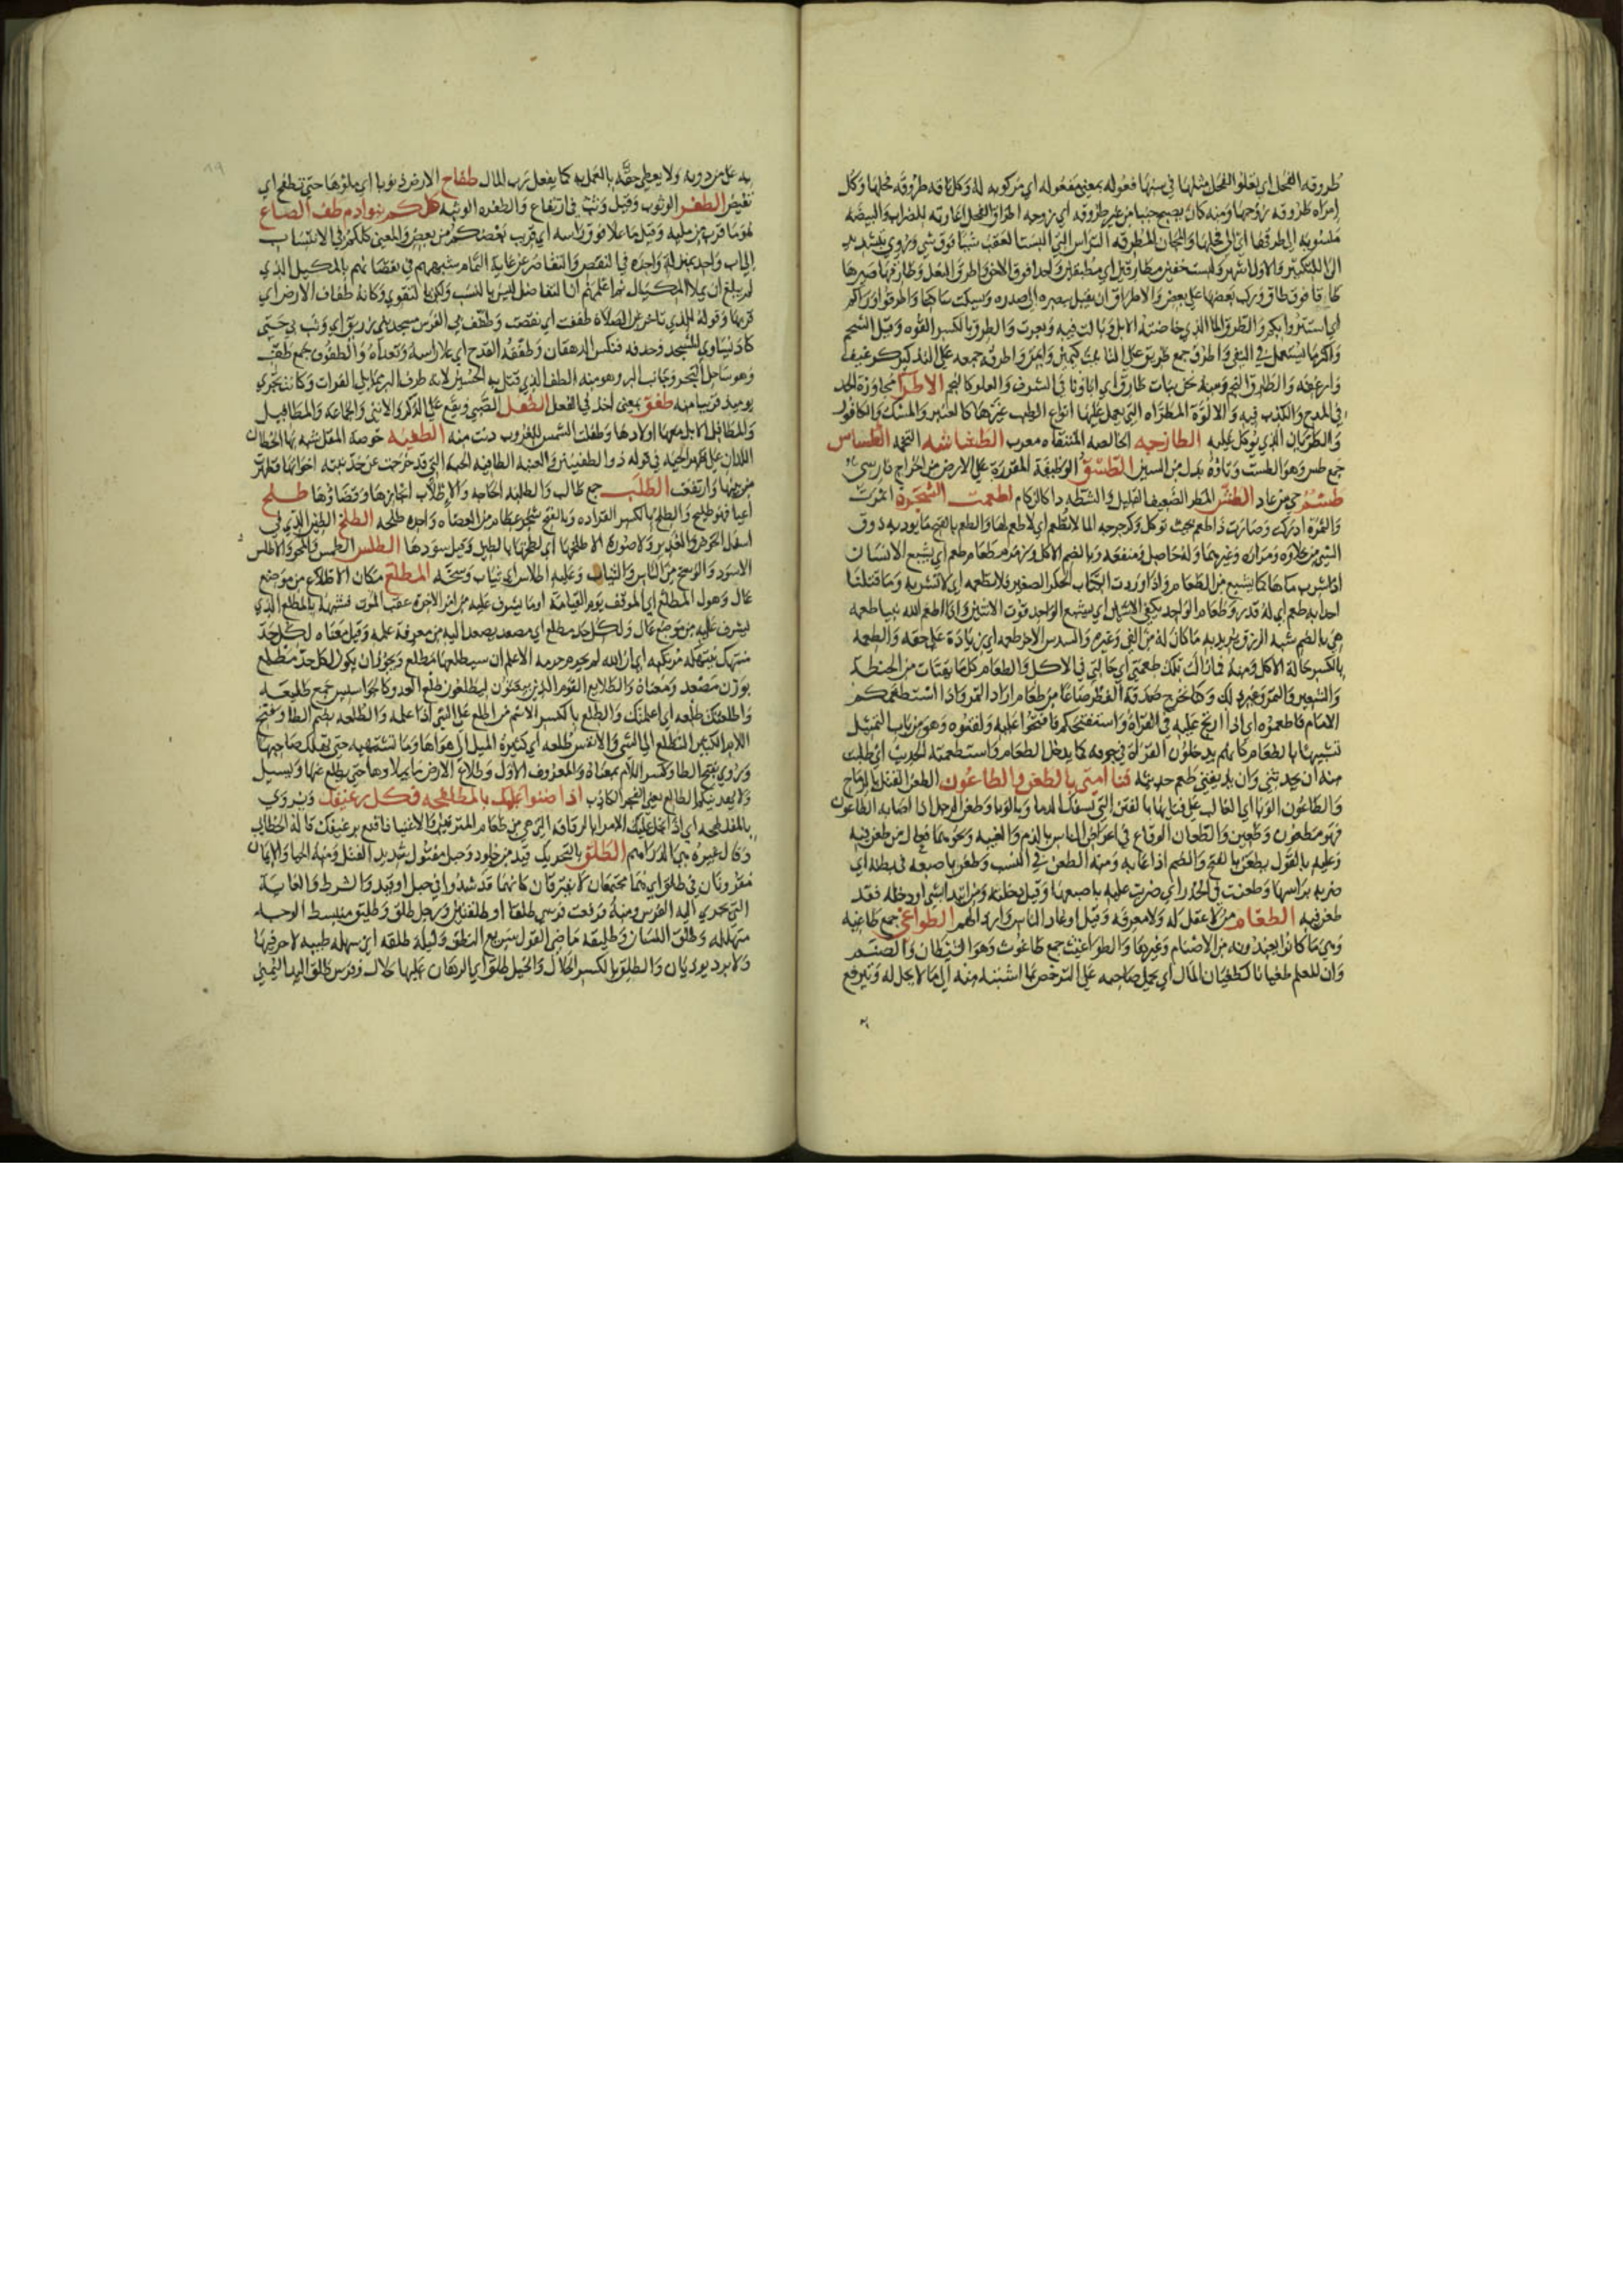 طروقة الفحل اي يعلوا الفحل مثلها في سنها فعولة بمعنى مفعولة اي مركوبه له وكل ناقة طروقة فحلها وكل
امراة طروقة زوجها ومنه كان يصبح جنبا من غير طروقة اي زوجه اطراق الفحل اعارته للضراب والبيضة
منسوبة الى طرقها اي الى فحلها والمجان المطرقة التراس التي البست العقب شيبا فوق شي وروي بتشديد
الرا للتكثير والاول اشهر ولبست خفين مطارقين اي مطبقين واحدا فوق الاخر واطرق النعل وطارقها صيرها
طاقا فوق طاق وركب بعضها على بعض والاطراق ان يقبل ببصره الى صدره ويسكت ساكتا واطرقوا وراكم
اي استتروا بكم والطرق الما الذي خاضته الابل وبالت فيه وبعرت والطرق بالكسر القوة وقيل الشحم
واكثر ما يستعمل في النفي واطرق جمع طريق على التانيث كيمين وايمن واطرقه جمعه على التذكير كرغيف
وارغفه والطارق النجم ومنه نحن بنات طارق اي اباونا في الشرف والعلو كالنجم الاطرا مجاوزة الحد
في المدح والكذب فيه والالوة المطراه التي يعمل عليها انواع الطيب غيرها كالعنبر والمسك والكافور
والطريان الذي يوكل عليه الطازجه الخالصه المنتقاه معرب الطشاشه التخمه الطساس
جمع طس وهو الطست وتاؤه بدل من السين الطسق الوظيفة المقررة على الارض من الخراج فارسي
طسم حي من عاد الطش المطر الضعيف القليل والشطه دا كالزكام اطعمت الشجرة اثمرت
والثمرة ادركت وصارت ذا طعم بحيث توكل وكرجرجه الما لا تطعم اي لا طعم لها والطعم بالفتح ما يوديه ذوق
الشي من حلاوه ومرارة وغيرهما وله حاصل ومنفعه وبالضم الاكل وزمزم طعام طعم اي يشبع الانسان
اذا شرب ماها كما يشبع من الطعام واذا وردت الحكر الصغير فلا تطعمه اي لا تشربه وما قتلنا
احدا به طعم اي له قدر وطعام الواحد يكفي الاثنين اي يشبع الواحد قوت الاثنين واذا اطعم الله نبيا طعمه
هي بالضم شبه الرزق يريد به ما كان له من الفي وغيره والسدس الاخر طعمه اي زيادة على حقه والطعمه
بالكسر حالة الاكل ومنه فما زالت تلك طعمتي اي حالتي في الاكل والطعام كل ما يقتات من الحنطة
والشعير والتمر وغير ذلك وكنا نخرج صدقة الفطر صاعا من طعام اراد التمر واذا استطعمكم
الامام فاطعموه اي اذا ارتج عليه في القراة واستفتحكم فافتحوا عليه ولقنوه وهو من باب التمثيل
تشبيها بالطعام كانهم يدخلون القراة في فيه كما يدخل الطعام واستطعمته الحديث اي طلبت
منه ان يحدثني وان يذيقني طعم حديثه فنا امتي بالطعن والطاعون الطعن القتل بالرماح
والطاعون الوبا اي الغالب على فنايها بالفتن التي تسفك الدما وبالوبا وطعن الرجل اذا اصابه الطاعون
فهو مطعون وطعين والطعان الوقاع في اعراض الناس بالذم والغيبه ونحوهما فعال من طعن فيه
وعليه بالقول يطعن بالفتح والضم اذا عابه ومنه الطعن في النسب وطعن باصبعه في بطنه اي
ضربه براسها وطعنت في الخدر اي ضربت عليه باصبعها وقيل دخلته ومن ابتدا بشي او دخله فقد
طعن فيه الطغام من لا عقل له ولا معرفة وقيل اوغاد الناس وارذالهم الطواغي جمع طاغيه
وهي ما كانوا يعبدونه من الاصنام وغيرها والطواغيت جمع طاغوت وهو الشيطان والصنم
وان للعلم طغيانا كطغيان المال اي يحمل صاحبه على الترخص بما اشتبه منه الى ما لا يحل له ويترفع
به على من دونه ولا يعطي حقه بالعمل به كما يفعل رب المال طفاح الارض ذنوبا اي ملؤها حتى تطفح اي
تفيض الطفر الوثوب وقيل وثب في ارتفاع والطفره الوثبه كلكم بنوادم طف الصاع
هو ما قرب من مليه وقيل ما علا فوق راسه اي قريب بعضكم من بعض والمعنى كلكم في الانتساب
الى اب واحد بمنزلة واحدة في النقص والتقاصر عن غاية التمام شبههم في نقصانهم بالمكيل الذي
لم يبلغ ان يملا المكيال ثم اعلمهم ان التفاضل ليس بالنسب ولكن بالتقوي وكانه طفاف الارض اي
قربها وقوله للذي تاخر عن الصلاة طففت اي نقصت وطفف بي الفرس مسجد بني زريق اي وثب بي حتى
كاد يساوي المسجد وحذفه فنكس الدهقان وطففه القدح اي علا راسه وتعداه والطفوف جمع طف
وهو ساحل البحر وجانب البر وهو منه الطف الذي قتل به الحسين لانه طرف البر مما يلي الفرات وكانت تجري
يوميذ قريبا منه طفق بمعنى اخذ في الفعل الطفل الصبي ويقع على الذكر والانثى والجماعة والمطافيل
والمطافل الابل معها اولادها وطفلت الشمس للغروب دنت منه الطفيه خوصة المقل شبه بها الخطان
اللذان على ظهر الحية في قوله ذو الطفيتين والعنبة الطافيه الحبة التي قد خرجت عن حد نبتة اخواتها فظهرت
من بينها وارتفعت الطلب جمع طالب والطلبه الحاجه والاطلاب انجازها وقضاؤها طلح
اعيا فهو طليح والطلح بالكسر القراده وبالفتح شجر عظام من العضاه واحده طلحه الطلخ الطين الذي في
اسفل الحوض والغدير ولا صورة الا طلختها اي لطختها بالطين وقيل سودها الطلس الطمس والمحو والاطلس
الاسود والوسخ من الناس والثياب وعليه اطلاس اي ثياب وسخه المطلع مكان الاطلاع من موضع
عال وهول المطلع اي الموقف يوم القيامة او ما يشرف عليه من امر الاخرة عقب الموت فشبهه بالمطلع الذي
يشرف عليه من موضع عال ولكل حد مطلع اي مصعد يصعد اليه من معرفة علمه وقيل معناه لكل حد
منتهك ينتهكه مرتكبه اي ان الله لم يحرم حرمه الا علم ان سيطلعها مطلع ويجوز ان يكون لكل حد مطلع
بوزن مصعد ومعناه والطلايع القوم الذين يبعثون ليطلعون طلع العدو كالجواسيس جمع طليعه
واطلعتك طلعه اي اعلمتك والطلع بالكسر الاسم من اطلع على الشي اذا علمه والطلعه بضم الطا وفتح
اللام الكثير التطلع الى الشي والانفس طلعه اي كثيرة الميل الى هواها وما تشتهيه حتى تهلك صاحبها
وروي بفتح الطا وكسر اللام بمعناه والمعروف الاول وطلاع الارض ما يملاوها حتى يطلع عنها ويسيل
ولا يهيدنكم الطالع يعني الفجر الكاذب اذا ضنوا عليك بالمطلفحه فكل رغيفك ويروي
بالمفلطحه اي اذا بخل عليك الامرا بالرقاقه التي هي من طعام المترفين والاغنيا فاقنع برغيفك قاله الخطابي
وقال غيره هي الدراهم الطلق بالتحريك قيد من جلود وحبل مفتول شديد الفتل ومنه الحيا والايمان
مقرونان في طلق اي هما مجتمعان لا يفترقان كانهما قد شدوا في حبل او قيد والشرط والغاية
التي يجري اليه الفرس ومنه فرفعت فرسي طلقا او طلقين ورجل طلق وطليق منبسط الوجه
متهلله وطلق اللسان وطليقه ماضي القول سريع النطق وليلة طلقه اي سهله طيبه لا حر فيها
ولا برد يوذيان والطلق بالكسر الحلال والخيل طلق اي الرهان عليها حلال وفرس طلق اليد اليمنى